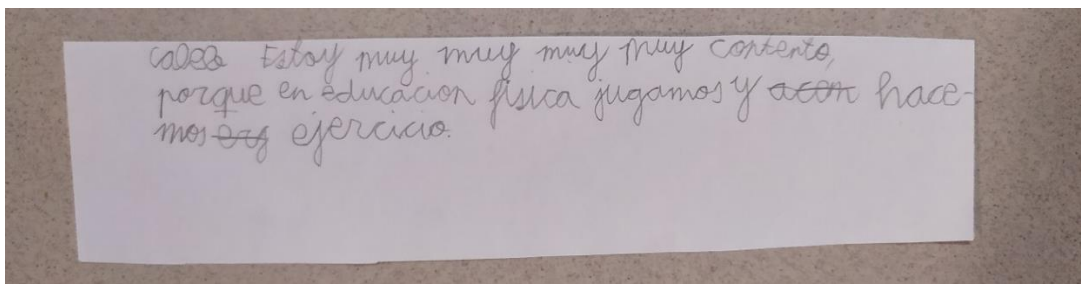 Estoy muy muy muy muy contento,
porque en educación física jugamos y hace-
mos ejercicio.